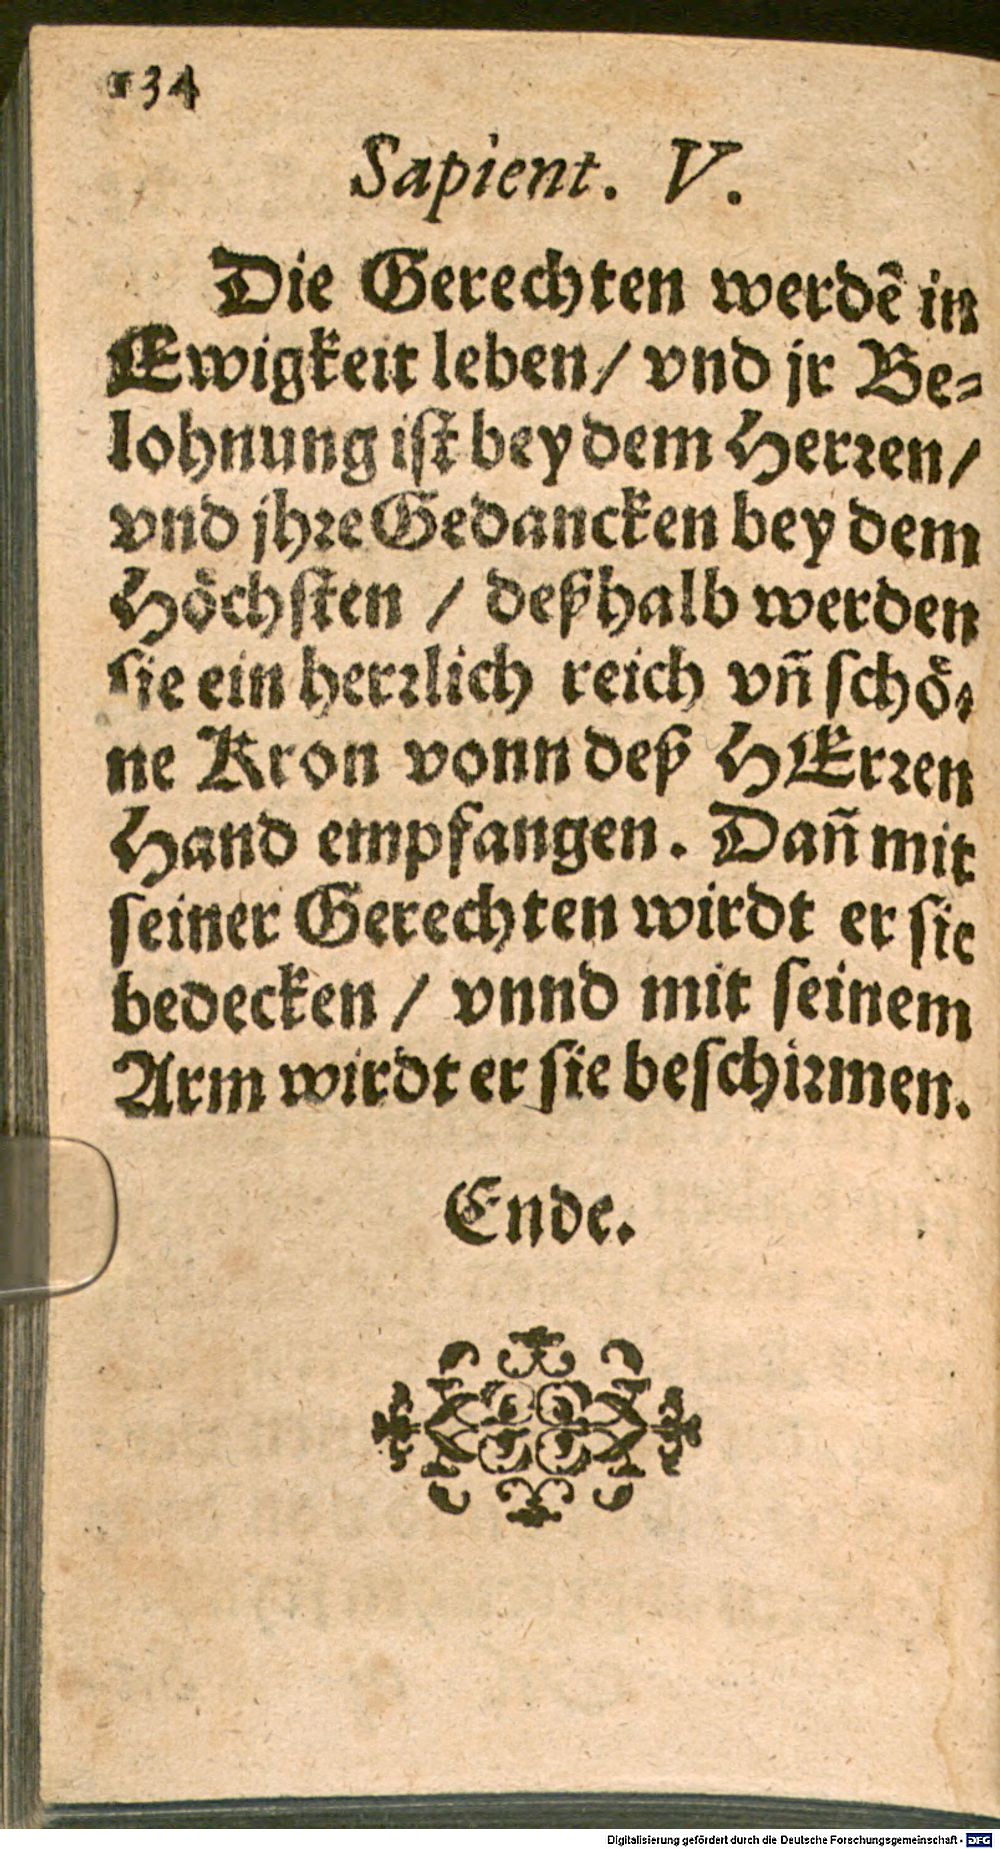 134
Sapient. V.
Die Gerechten werdẽ in
Ewigkeit leben / vnd jr Be⸗
lohnung iſt bey dem Herꝛen /
vnd jhꝛe Gedancken bey dem
Hoͤchſten / deßhalb werden
ſie ein herꝛlich reich vñ ſchoͤ⸗
ne Kron vonn deß HErꝛen
Hand empfangen. Dañ mit
ſeiner Gerechten wirdt er ſie
bedecken / vnnd mit ſeinem
Arm wirdt er ſie beſchiꝛmen.
Ende.
Digitalisierung gefördert durch die Deutsche Forschungsgemeinschaft - DFG